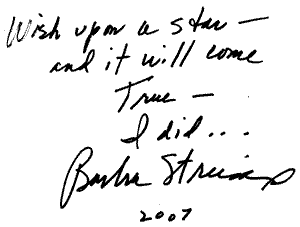 Wish upon a star —
and it will come
True —
I did...
Barbra Streisand
2007